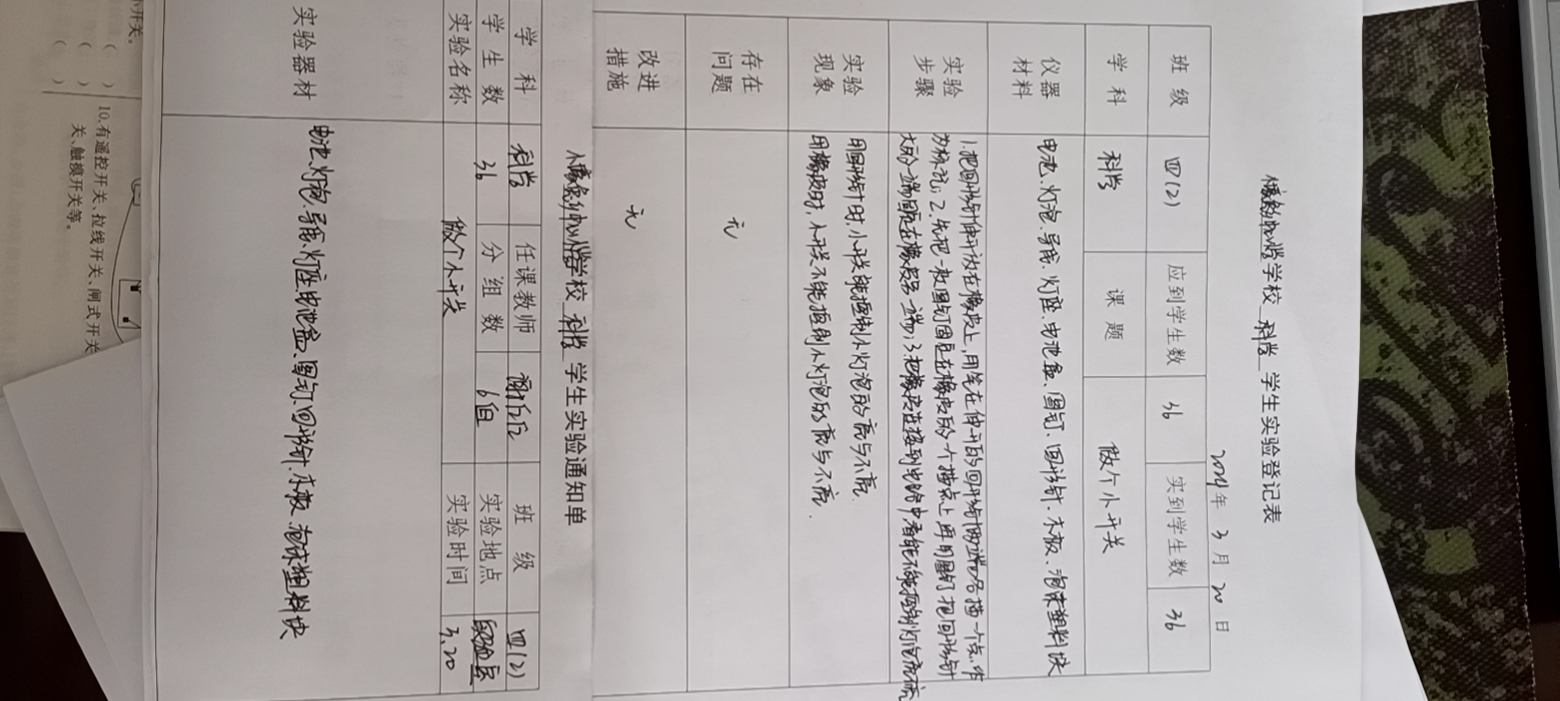 学校 科学 学生实验登记表
年 3 月 20 日
班级 四(2) 应到学生数 36 实到学生数 36
学科 科学 课题 做个小开关
仪器材料 电池、灯泡、导线、灯座、电池盒、图钉、回形针、木板、泡沫塑料块
实验步骤 1.把回形针伸开放在橡皮上,用笔在伸开的回形针两端各描一个点,作
为标记;2.先把一枚图钉固定在橡皮的一个描点上,再用图钉把回形针
大的一端固定在橡皮另一端;3.把橡皮连接到电路中看能不能控制灯泡亮
实验现象 用回形针时,小开关能控制小灯泡的亮与不亮
用橡皮时,小开关不能控制小灯泡的亮与不亮.
存在问题 无
改进措施 无
学校 科学 学生实验通知单
学科 科学 任课教师 班级 四(2)
学生数 36 分组数 6组 实验地点 实验室
实验名称 做个小开关 实验时间 3.20
实验器材 电池、灯泡、导线、灯座、电池盒、图钉、回形针、木板、泡沫塑料块
小开关。
( )
( )
( )
10.有遥控开关、拉线开关、闸式开关
关、触摸开关等。